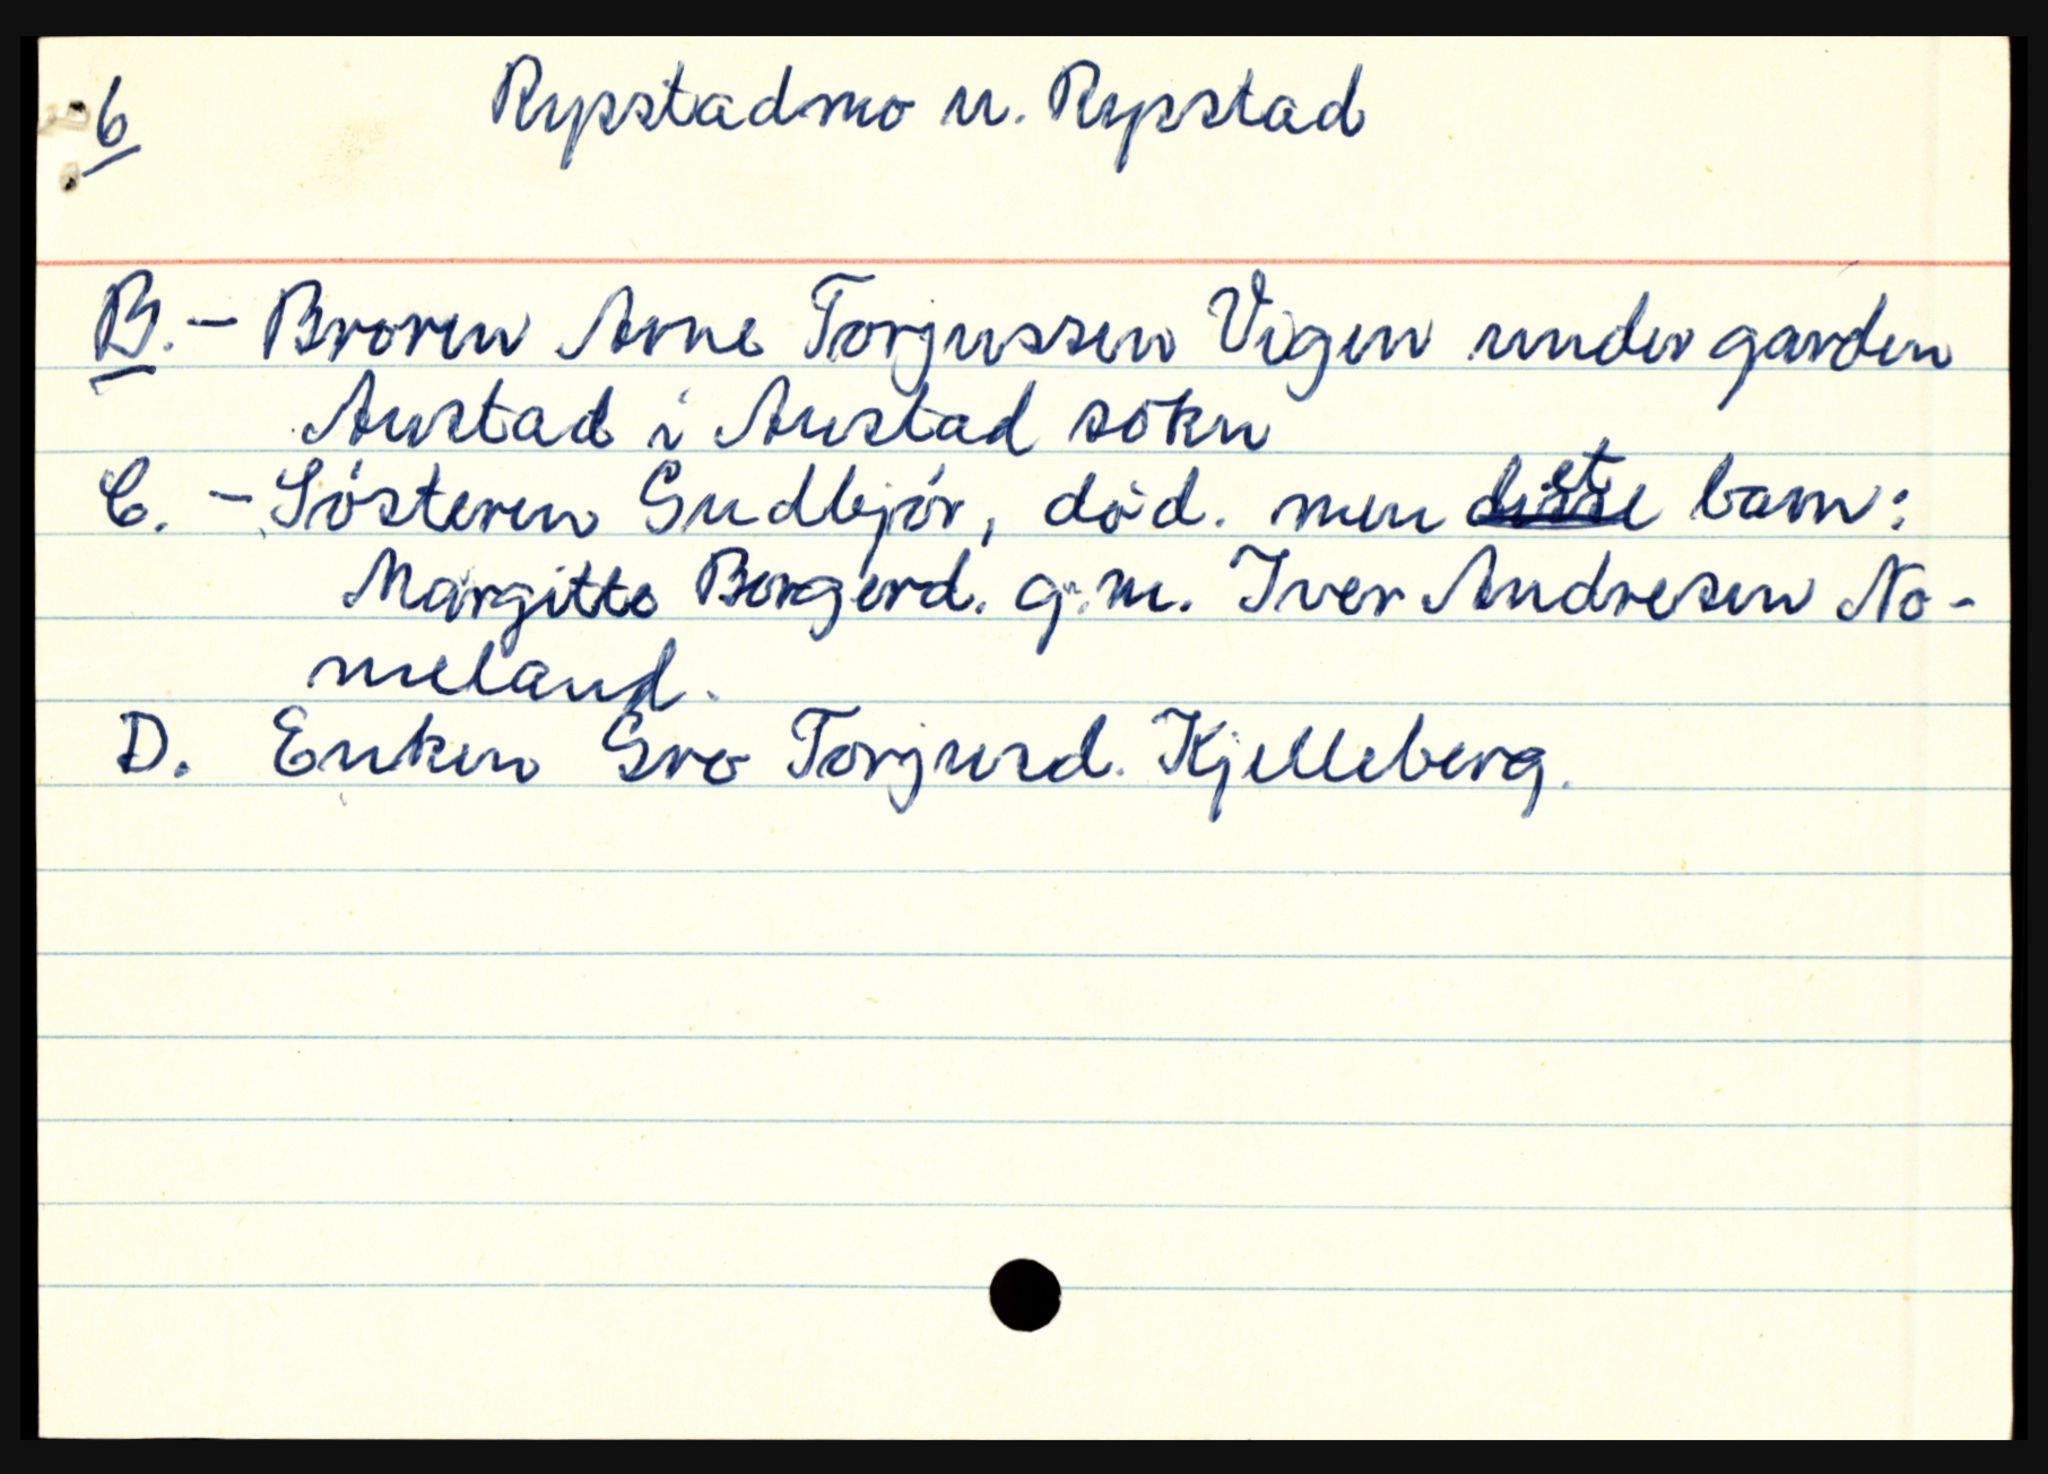 6 Rypstadmo u. Rypstad
B. - Broren Arne Torjussen Vigen under garden
Austad i Austad sökn
C. - Sösteren Gudbjör, död. men et barn:
Margitte Borgerd. g.m. Iver Andresen No-
meland.
D. Enken Gro Torjusd. Kjelleberg.